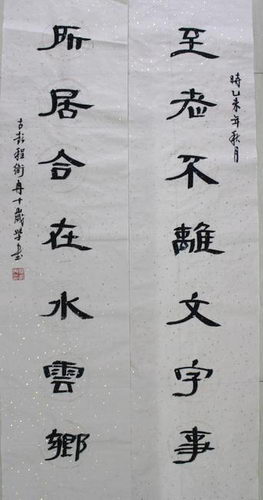 至老不離文字事
時乙未年秋月
所居合在水雲鄉
古彭程衛舟十歲學書